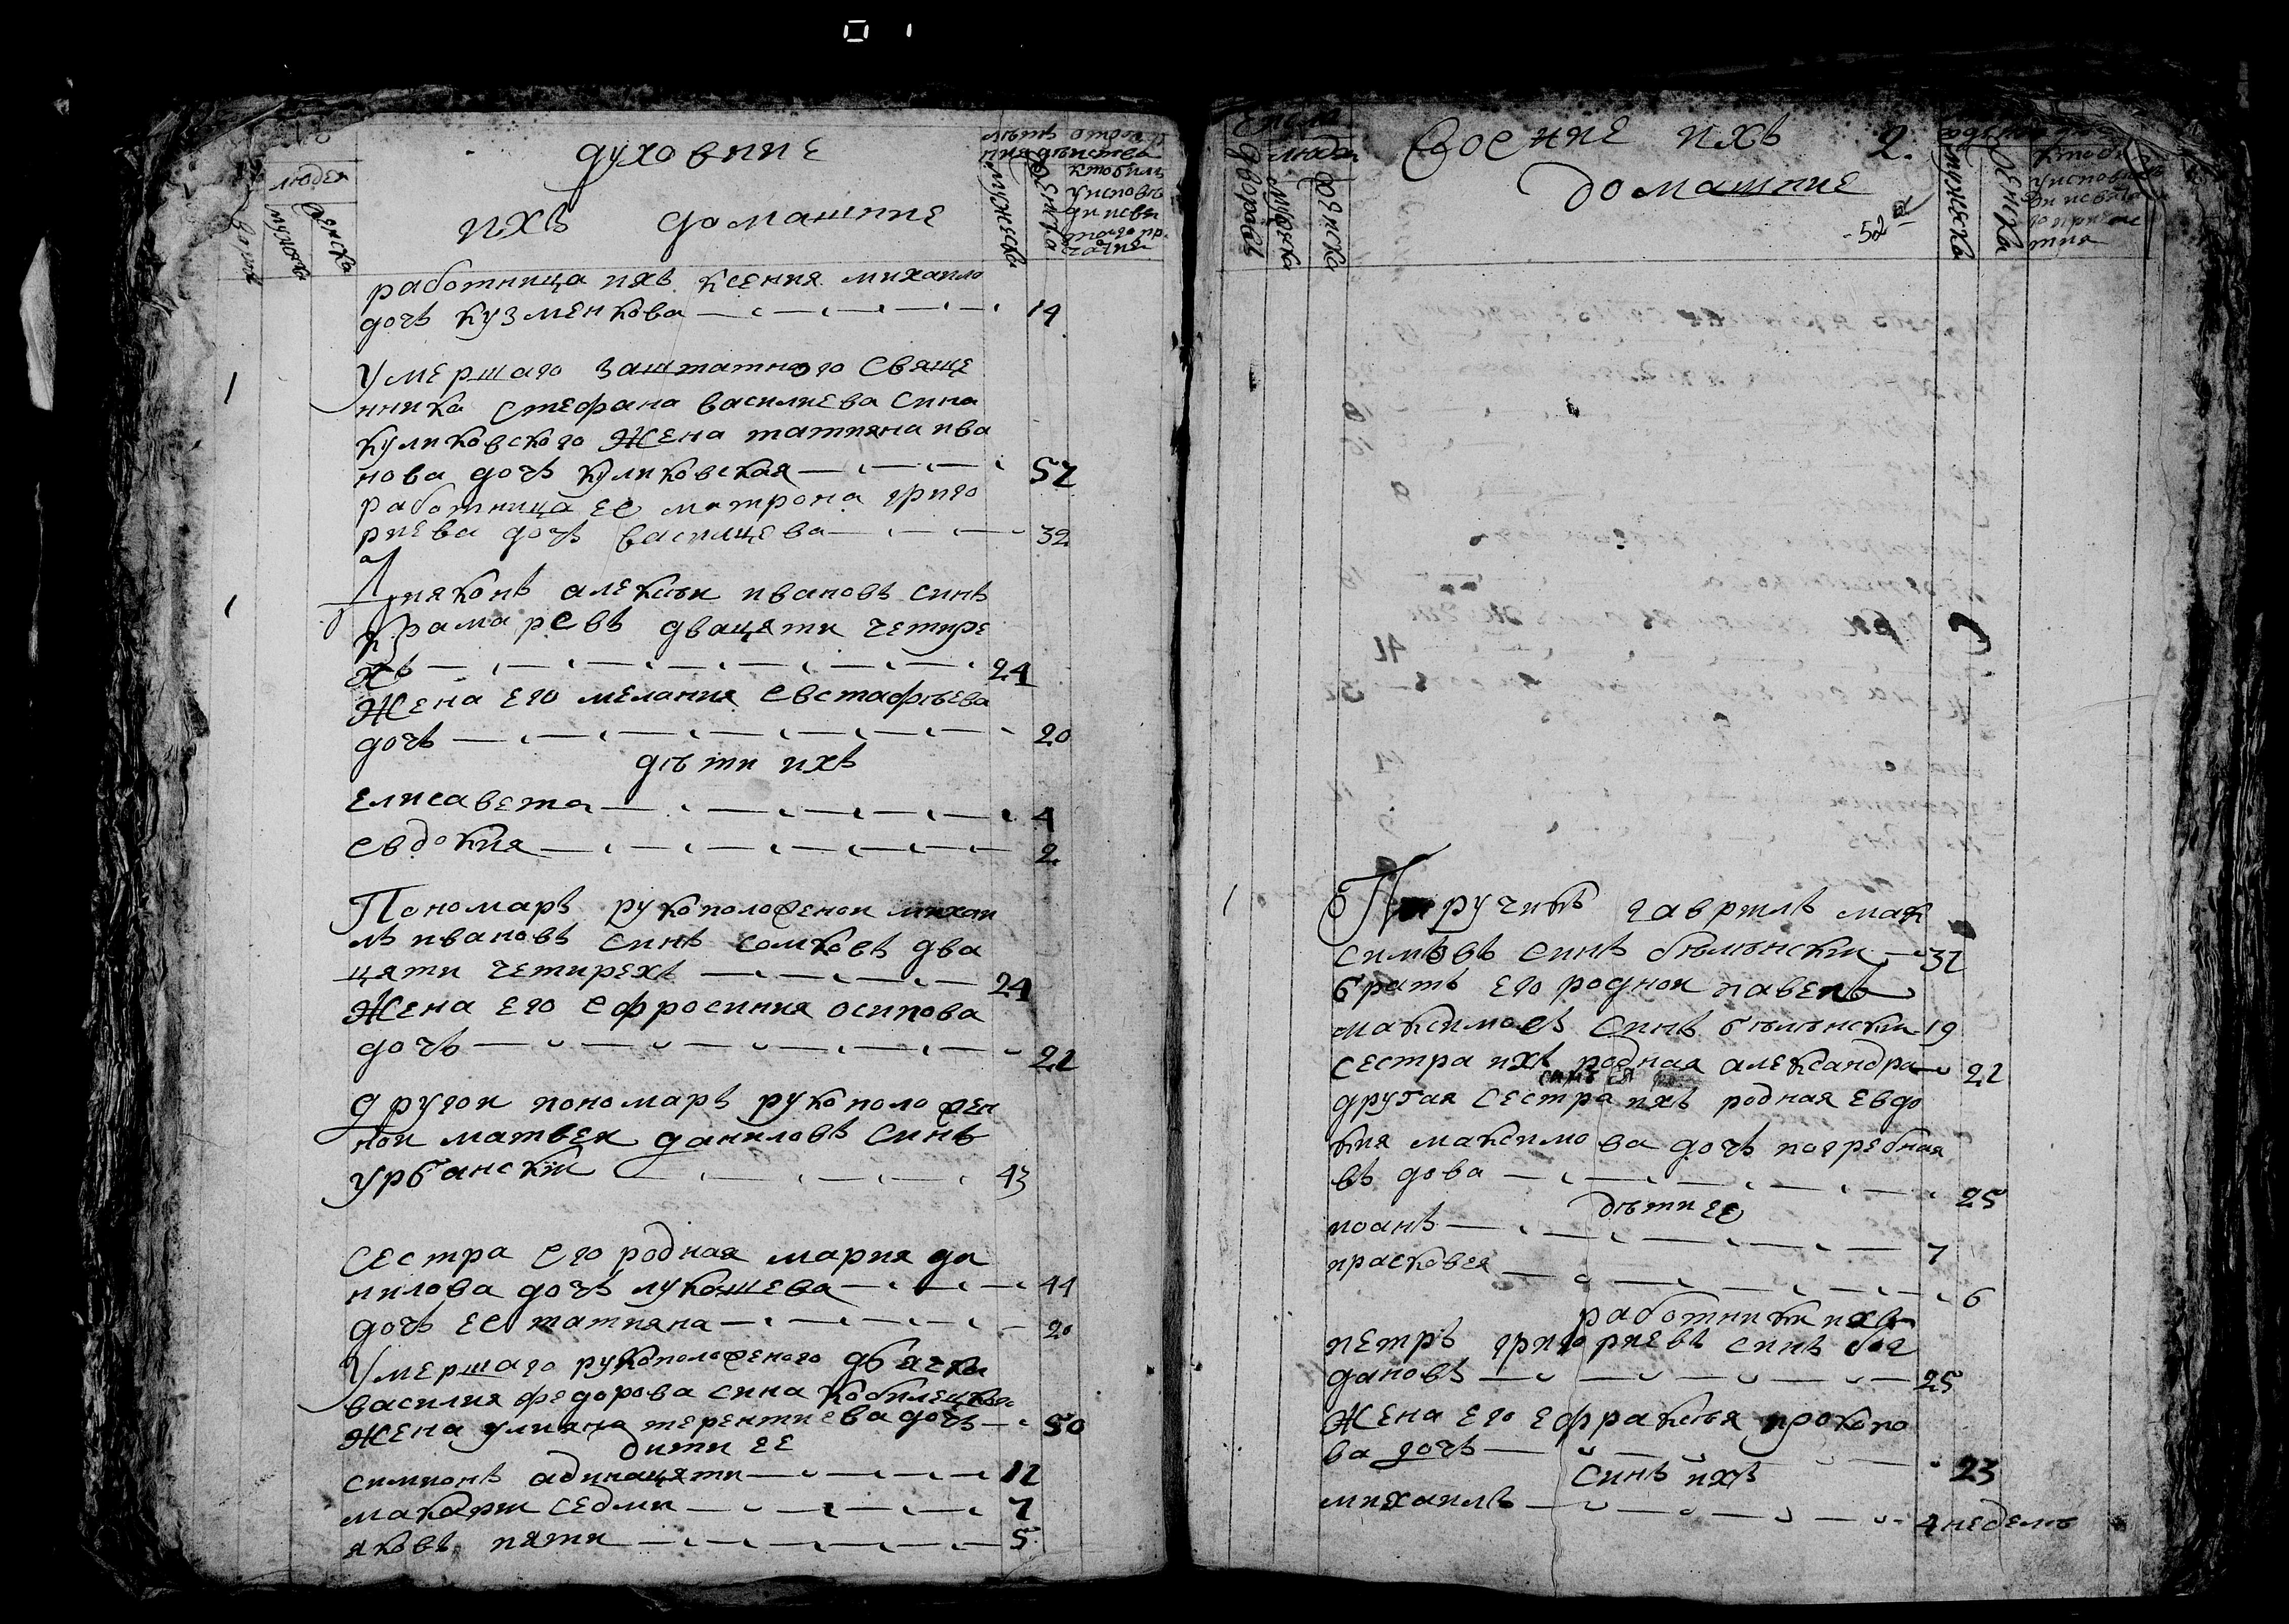 духовние
ихъ домашние
людей
мужеска
женска
мужеска
женска
кто были
у исповѣ
работница ихъ ксения михаило
дочъ кузменкова 14
1 Умершаго заштатного свяще
нника стефана василиева сина
куликовского жена татияна ива
нова дочъ куликовская 52
работница ее матрона григо
риева дочъ василцева 32
1 Дияконъ алексѣи ивановъ синъ
крамаревъ двацяти четире
хъ 24
жена его мелания евстафѣева
дочъ 20
дѣти ихъ
елисавета 4
евдокия 2
Пономаръ рукоположенои михаи
лъ ивановъ синъ сомковъ два
цяти четирехъ 24
жена его ефросиния осипова
дочъ 22
другои пономаръ рукоположен
нои матвеи даниловъ синъ
урбанскїи 43
сестра его родная мария да
нилова дочъ лукашева 44
дочъ ее татияна 20
Умершаго рукоположеного дьячка
василия федорова сина кобилецкого
жена улияна терентиева дочъ 50
дити ее
симионъ адинацяти 11
макарии седми 7
яковъ пяти 5
военние ихъ 2.
домашние
-52-
дворовъ
людей
мужеска
женска
мужеска
женска
1 Поручикъ гаврилъ мак
симовъ синъ билинскии 32
братъ его роднои павелъ
максимовъ синъ билинскии 19
сестра ихъ родная александра 22
синъ ея
другая сестра ихъ родная евдо
кия максимова дочъ погребная
въдова 25
дѣти ее
иоанъ 7
прасковея 6
работники ихъ
петръ григориевъ синъ бог
дановъ 25
жена его ефраксѣя прокопо
ва дочъ 23
синъ ихъ
михаилъ 4 неделѣ